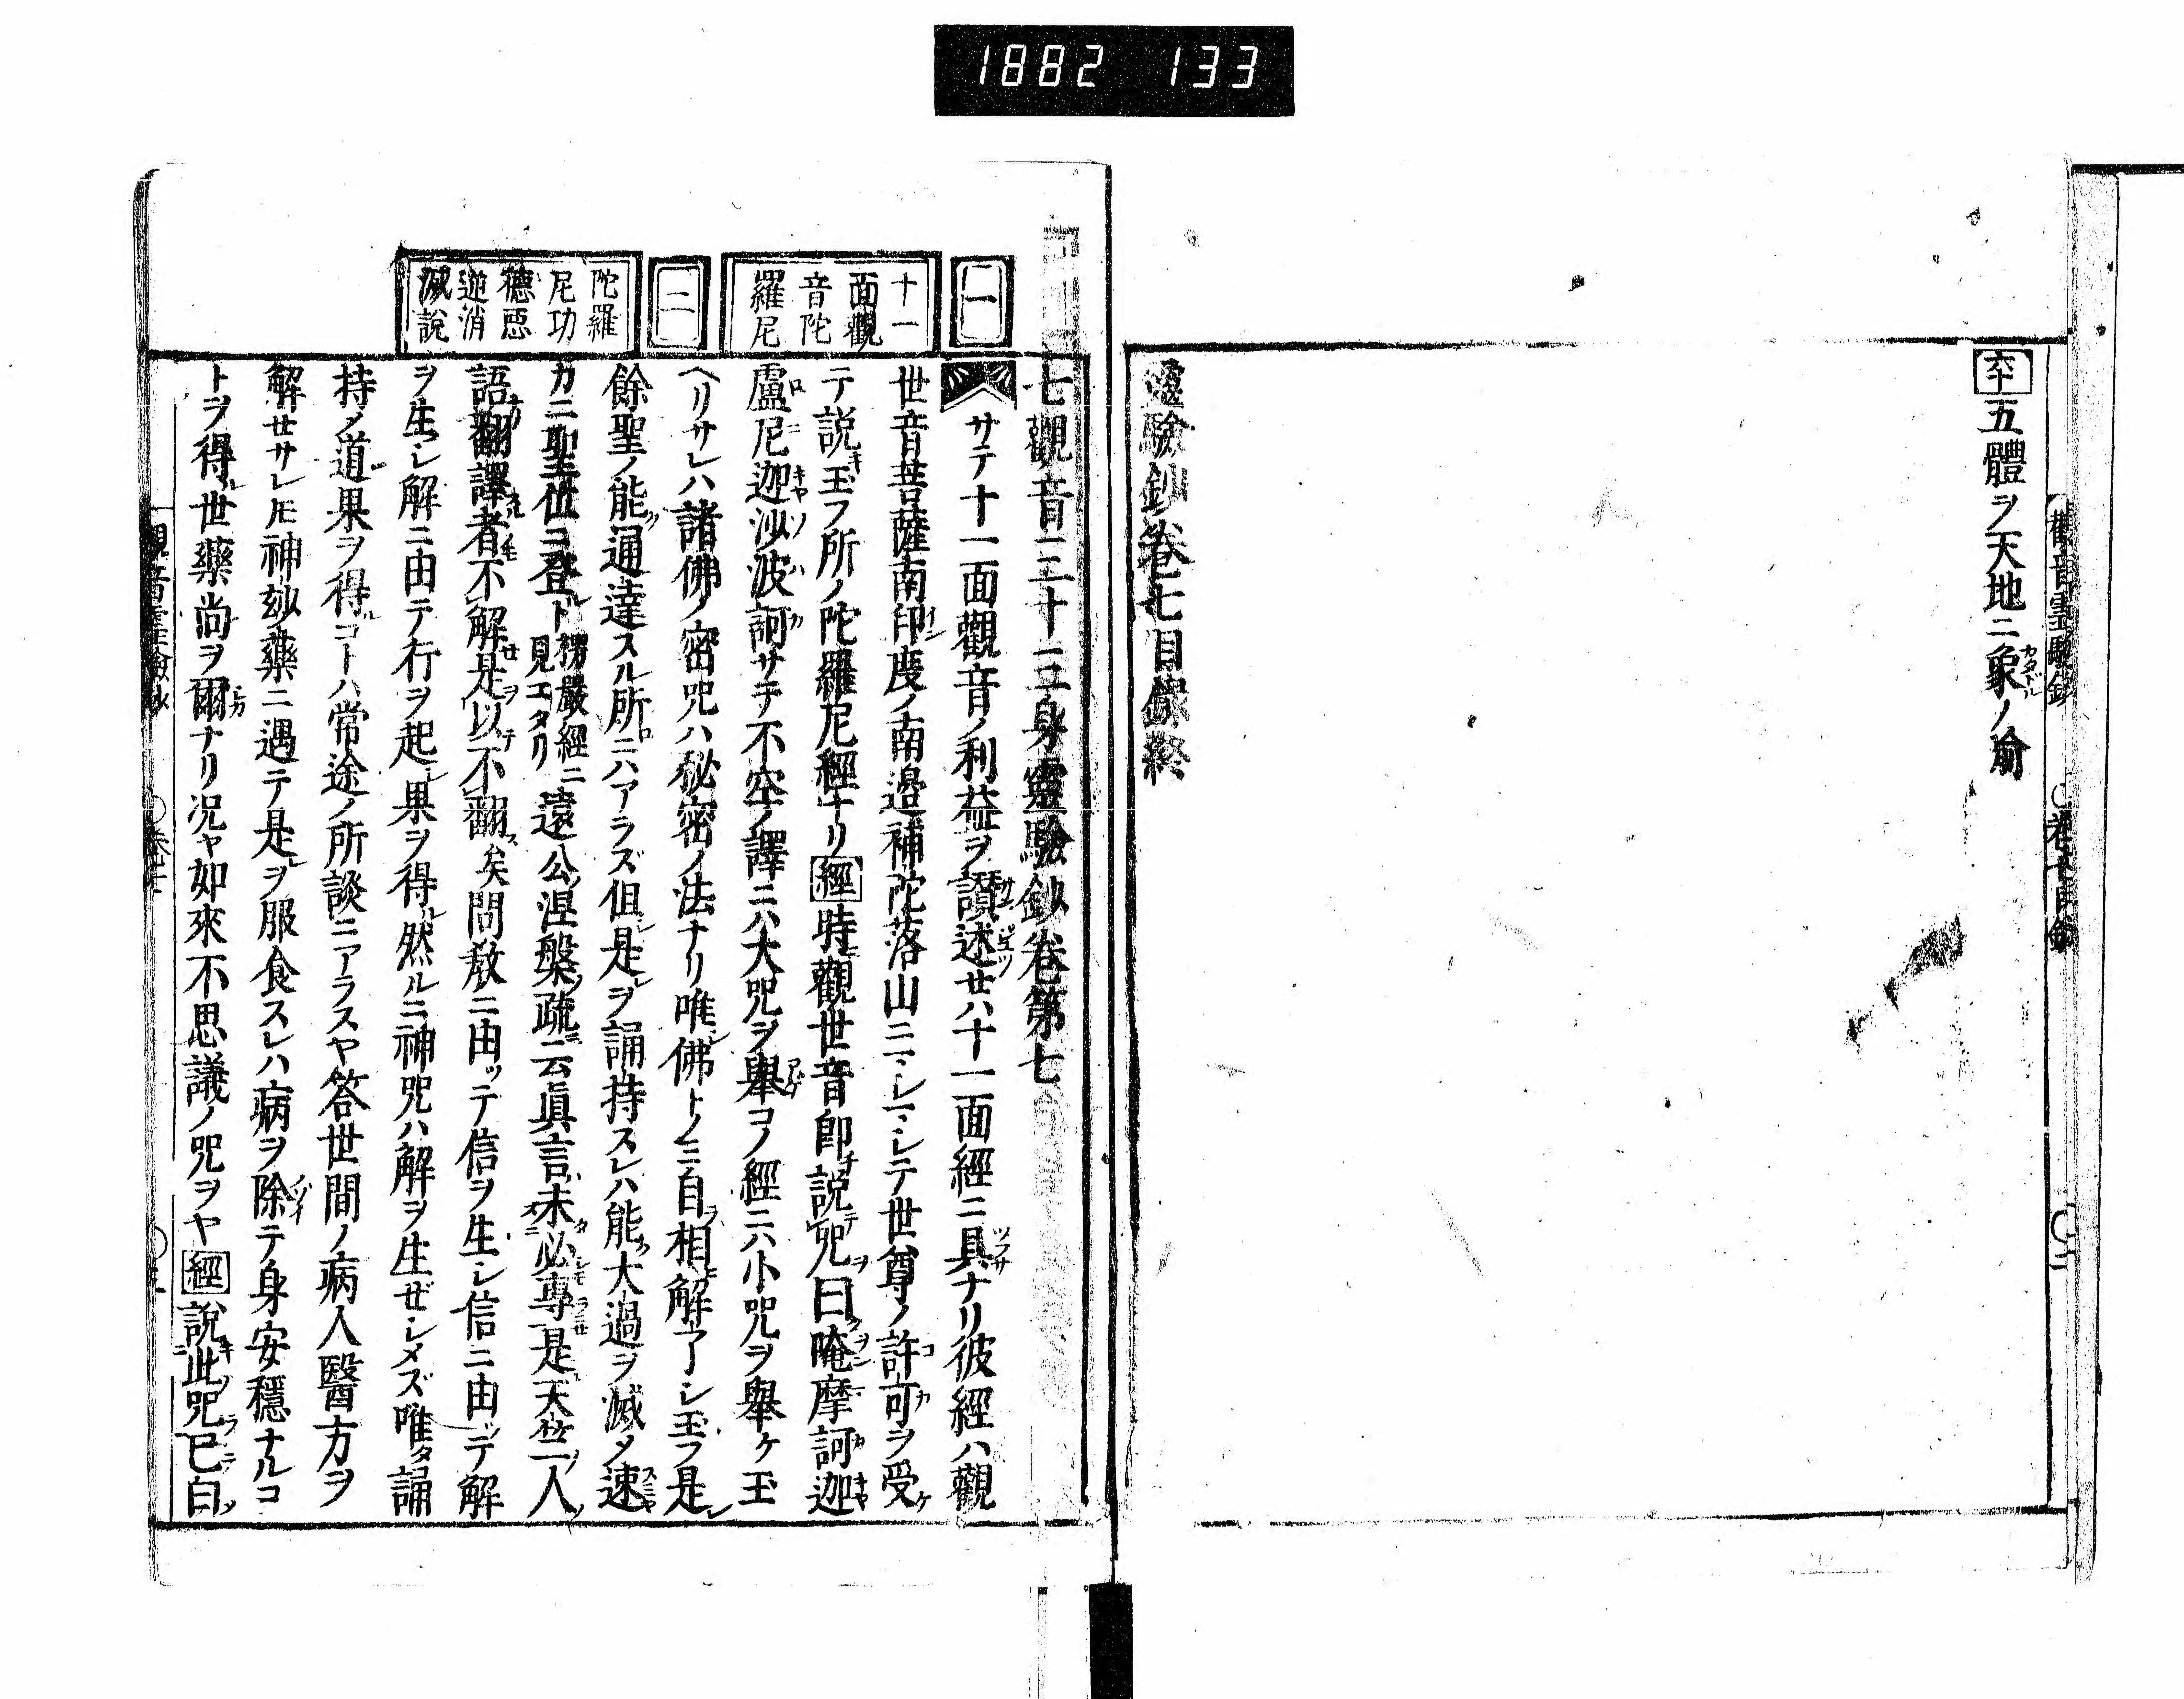 1882 133
六十五體ヲ天地ニ象ノ喻
靈驗鈔卷七目錄終
一
十一
面觀
音陀
羅尼
二
陀羅
尼功
德惡
逆消
滅說
七觀音三十三身靈驗鈔卷第七
サテ十一面觀音ノ利益ヲ讃述セハ十一面經ニ具ナリ彼經ハ觀
世音菩薩南印度ノ南邉補陀落山ニマシマシテ世尊ノ許可ヲ受
テ説玉フ所ノ陀羅尼經ナリ經時觀世音即説呪曰唵摩訶迦
盧尼迦沙波訶サテ不空ノ譯ニハ大呪ヲ舉コノ經ニハ小呪ヲ舉ケ玉
ヘリサレハ諸佛ノ密呪ハ秘密ノ法ナリ唯佛トノミ自相解了シ玉フ是
餘聖ノ能通達スル所ニハアラズ但是ヲ誦持スレハ能大過ヲ滅タ速
カニ聖位ニ登ト楞嚴經ニ見エタリ遠公涅槃疏云眞言未必專是天竺人
語翻譯者不解是以不翻矣問敎ニ由ッテ信ヲ生シ信ニ由ッテ解
ヲ生シ解ニ由テ行ヲ起果ヲ得然ルニ神呪ハ解ヲ生ゼシメズ唯タ誦
持ノ道果ヲ得コトハ常途ノ所談ニアラスヤ答世間ノ病人醫方ヲ
解セサレ𪜈神妙藥ニ遇テ是ヲ服食スレハ病ヲ除テ身安穩ナルコ
トヲ得世藥尚ヲ爾ナリ况ヤ如來不思議ノ呪ヲヤ經説此呪已白